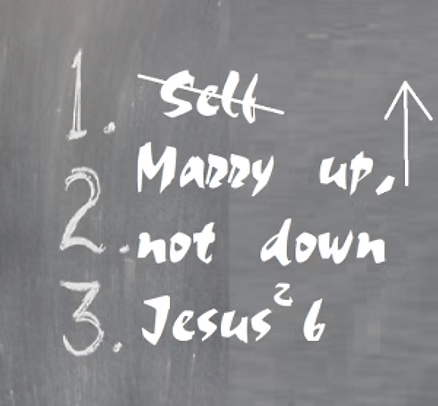 1. Self
Marry up,
2. not down
3. Jesus² 6